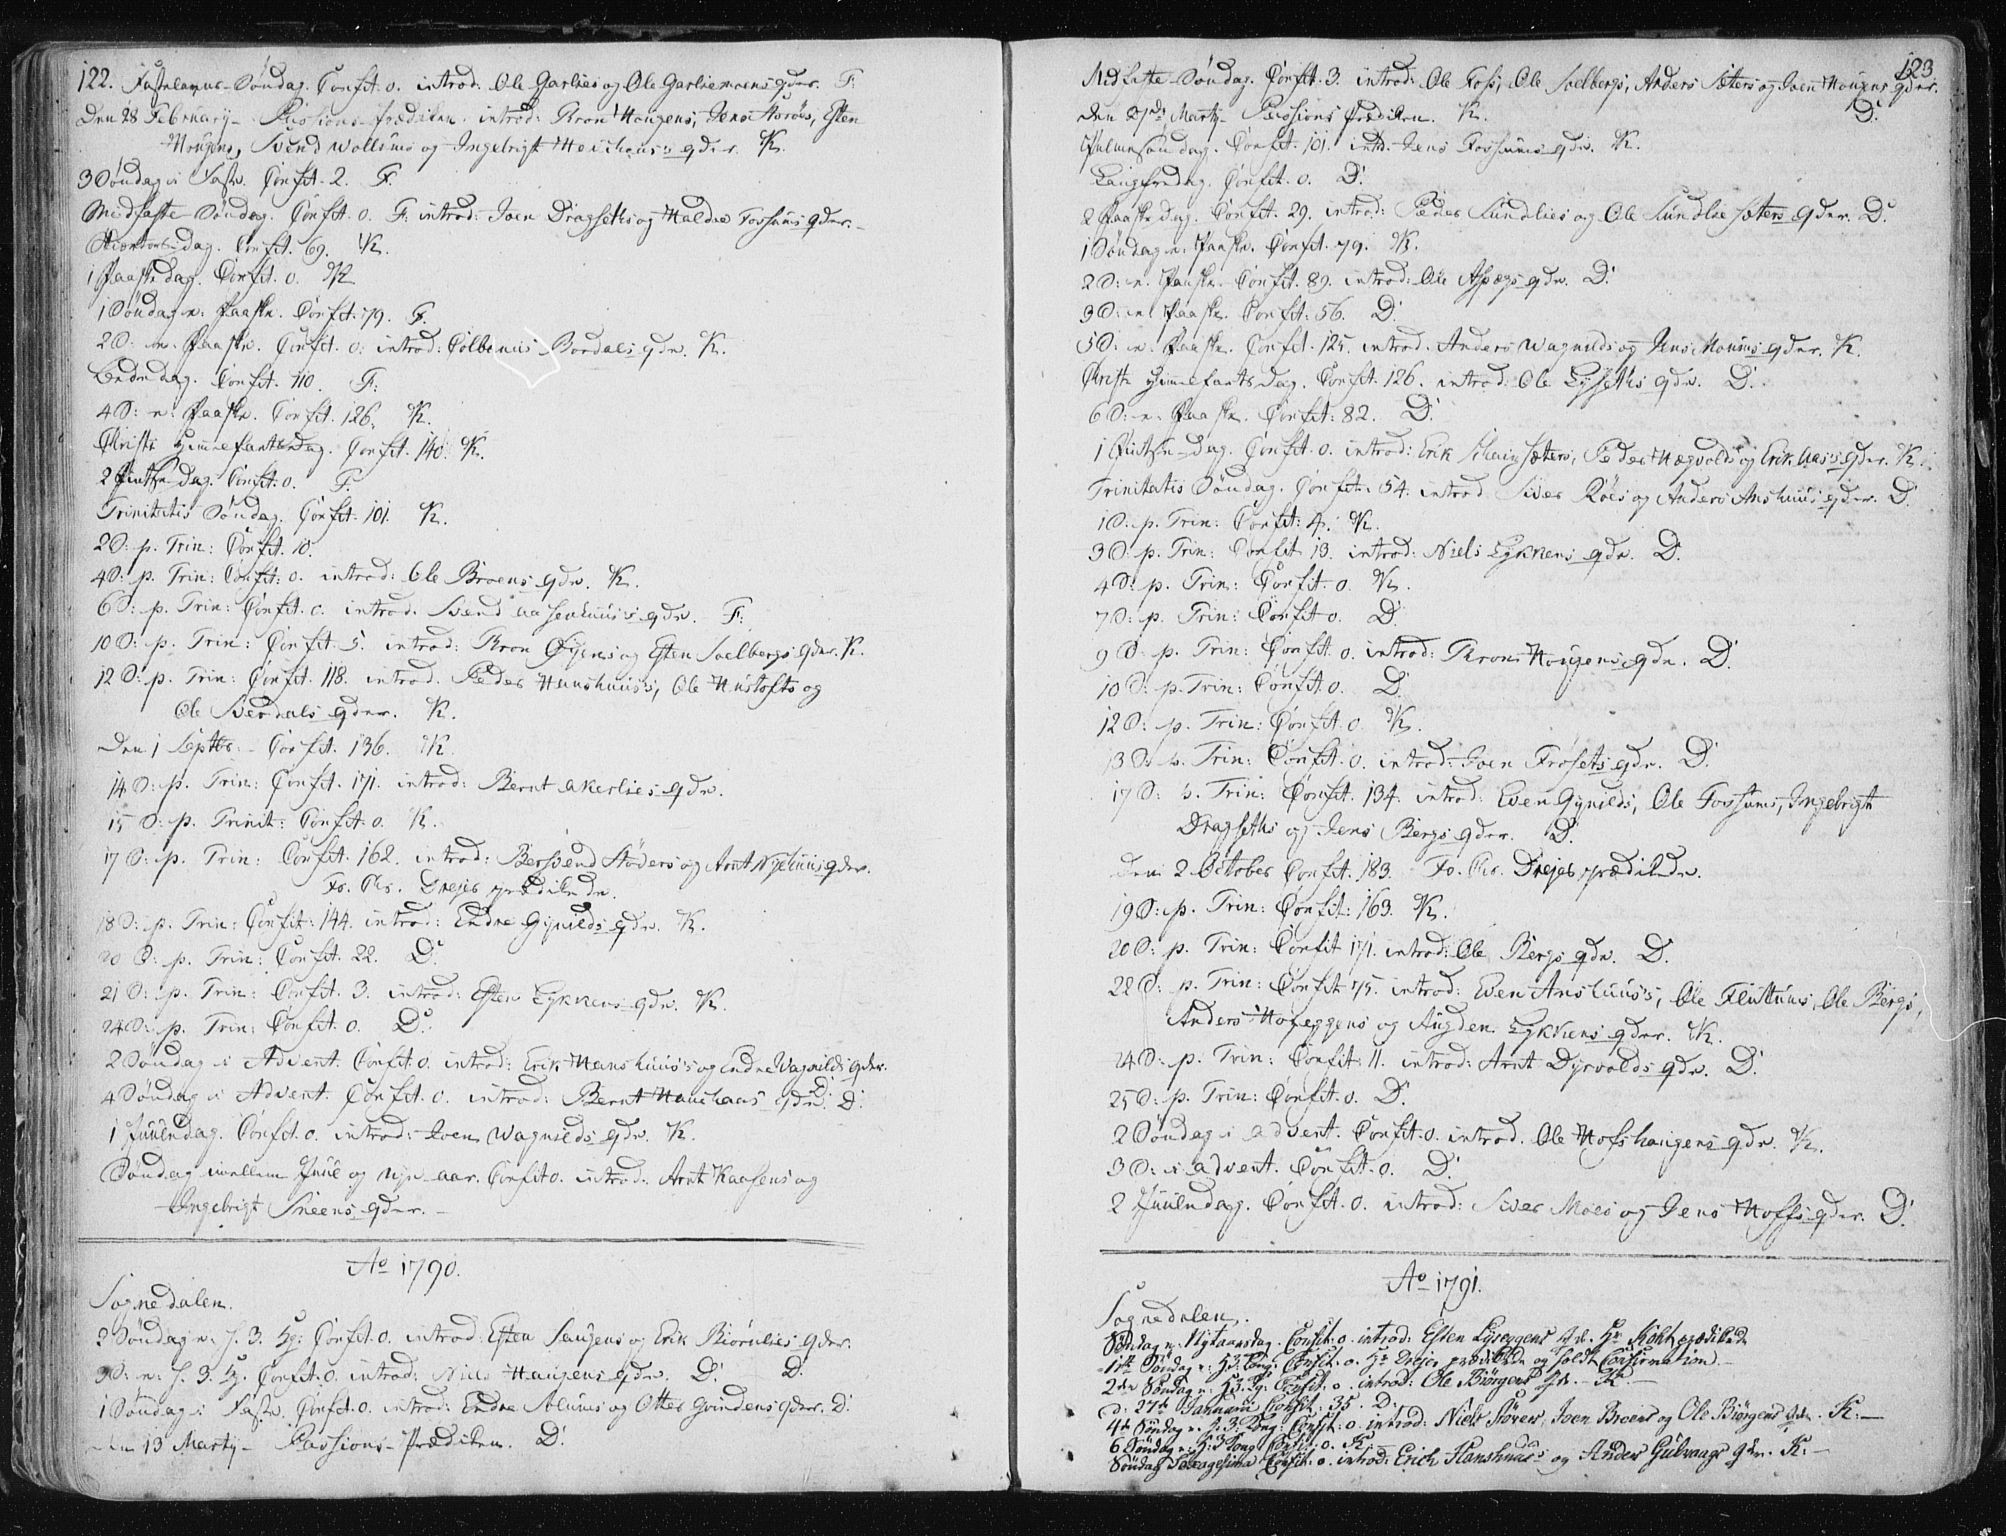 122. Fastelavns-Søndag. Confit. 0. introd: Ole Garlies og Ole Garliemoens qdr. F.
Den 28 February - Passions-Prædiken. introd: Haugens, Jens Esten
Haugens, Svend Wollums og Ingebrigt qdr. K.
3 Søndag i Faste. Confit. 2. F.
Midfaste-Søndag. Confit. 0. F. introd: Joen Dragseths og Haldoe Fossums qdr.
Skiertorsdag. Confit. 69. K.
1 Paaske dag. Confit. 0. K
1 Søndag n. Paaske. Confit. 79. F.
2 S: n. Paaske. Confit. 0. introd: Bordals qdr. K.
Bededag. Confit. 110. F.
4 S: n: Paaske. Confit. 126. K.
Christi Himmelfartsdag. Confit. 140. K.
2 Pintse-dag. Confit. 0. F.
Trinitatis Søndag. Confit. 101. K.
2 S: p. Trin: Confit. 10.
4 S: p. Trin: Confit. 0. introd: Ole Broens qdr. K.
6 S: p. Trin: Confit. 0. introd. Svend Aasenhuus's qdr. F.
10 S: p. Trin: Confit. 5. introd: Øyens og Esten Soelbergs qdr. K.
12 S: p. Trin: Confit. 118. introd. Peder Hanshuus's, Ole Hustofts og
Ole Sverdals qdr. K.
Den 1 Septbr: - Confit. 136. K.
14 S: p. Trin: Confit. 171. introd: Bernt Akerlies qdr.
15 S: p. Trinit: Confit. 0. K.
17 S: p. Trin: Confit. 162. introd: Støders og Arnt Nyehuus qdr.
Hr. Drejer prædikede.
18 S: p. Trin: Confit: 144. introd: Endre Gynilds qdr. K.
20 S: p. Trin: Confit. 22. D.
21 S: p. Trin: Confit. 3. introd: Esten Egknens qdr. K.
24 S: p. Trin: Confit. 0. D.
2 Søndag i Advent. Confit. 0. introd: Erik Hanshuus's og Endre Vagnilds qdr.
4 Søndag i Advent. Confit. 0. introd: Bernt qdr. D.
1 Juuledag. Confit. 0. introd: Joen Wagnilds qdr. K.
Søndag imellem Juul og Nye-aar. Confit 0. introd: Arnt Kaasens og
Ingebrigt Sneens qdr. -
Ao 1790.
Sognedalen.
2 Søndag n: H. 3. Kg: Confit. 0. introd: Esten Haugens og Erik Biørnlies qdr.
3 S: n: H. 3. Kg. Confit. 0. introd: Niels Haugens qdr. D. D.
1 Søndag i Faste. Confit. 0. introd: Endre og Otter Gvindens qdr. D.
Den 13 Marty - Passions-Prædiken. D.
123
Midfaste-Søndag. Confit. 3. introd: Ole Foss, Ole Soelbergs, Anders Sæters og Joen Haugens qdr.
Den Marty - Passions Prædiken. K. D.
Palmesøndag. Confit. 101. introd. Jens Fossums qdr. K.
Langfredag. Confit. 0. D.
2 Paaske Dag. Confit. 29. introd: Peder Lundlies og Ole Lundliesæters qdr. D.
1 Søndag n: Paaske. Confit. 79. K.
2 S: n. Paaske. Confit. 89. introd: Ole Aspegs qdr. D.
3 S: n. Paaske. Confit. 56. D.
5 S: n. Paaske. Confit. 125. introd: Anders Wagnilds og Jens Moums qdr. K.
Christi Himmelfarts Dag. Confit. 126. introd: Ole qdr. D.
6 S: n: Paaske. Confit: 82. D.
1 Pintse-dag. Confit. 0. introd: Erik Peder Hægvolds og Erik Aas's qdr. K.
Trinitatis Søndag. Confit: 54. introd Siver Roes og Anders Anshuus qdr. D.
1 S: p. Trin: Confit: 4. K.
3 S: p. Trin: Confit. 13. introd: Niels Egknens qdr. D.
4 S: p. Trin: Confit. 0. K.
7 S: p. Trin: Confit 0. D.
9 S: p. Trin: Confit. 0. introd: Haugens qdr. D.
10 S: p. Trin: Confit. 0. D.
12 S: p. Trin: Confit. 0 K.
13 S: p. Trin: Confit. 0. introd: Joen Frosets qdr. D.
17 S: p. Trin: Confit. 134. introd: Even Gynilds, Ole Fossums, Ingebrigt
Dragseths og Jens Bergs qdr. D.
Den 2 October Confit. 183. Hr. Drejer prædikede.
19 S: p. Trin: Confit: 163. K.
20 S: p. Trin: Confit 171. introd: Ole Bergs qdr. D.
22 S: p. Trin: Confit 75. introd: Even Anshuus's, Ole Fluttums, Ole Bergs,
Anders Hofeggens og Augden Egknens qdr. K.
24 S: p. Trin: Confit: 11. introd: Arnt Dyrvolds qdr. D.
25 S: p. Trin: Confit. 0. D.
2 Søndag i Advent. Confit. 0. introd. Ole Hofshaugens qdr. K.
3 S: i Advent. Confit. 0. D.
2 Juuledag. Confit. 0. introd: Siver Moes og Jens Hoffs qdr. D.
Ao 1791.
Sognedalen.
Søndag n. Nytaarsdag. Confit: 0. introd: Esten Lyseggens qde. Hr Kokt prædikede
1ste Søndag n: H3 Kong: Confit: 0. Hr Drejer prædikede og holdt Confirmation -
2den Søndag n: H3. Kg: Confit: 0. introd: Ole Biørgens qde. - K. -
D: 27de Januarii Confit: 35. D.
4de Søndag n. H. 3. Kong: Confit: 0. introd: Niels Støren, Joen Broens og Ole Biørgens qdr. K: -
6 Søndag n. H: 3 Kong Confit: 0. K -
Søndag Sexagesima Confit: 0. introd: Erich Hanshuus's og Anders Gulvaags qdr. K: -